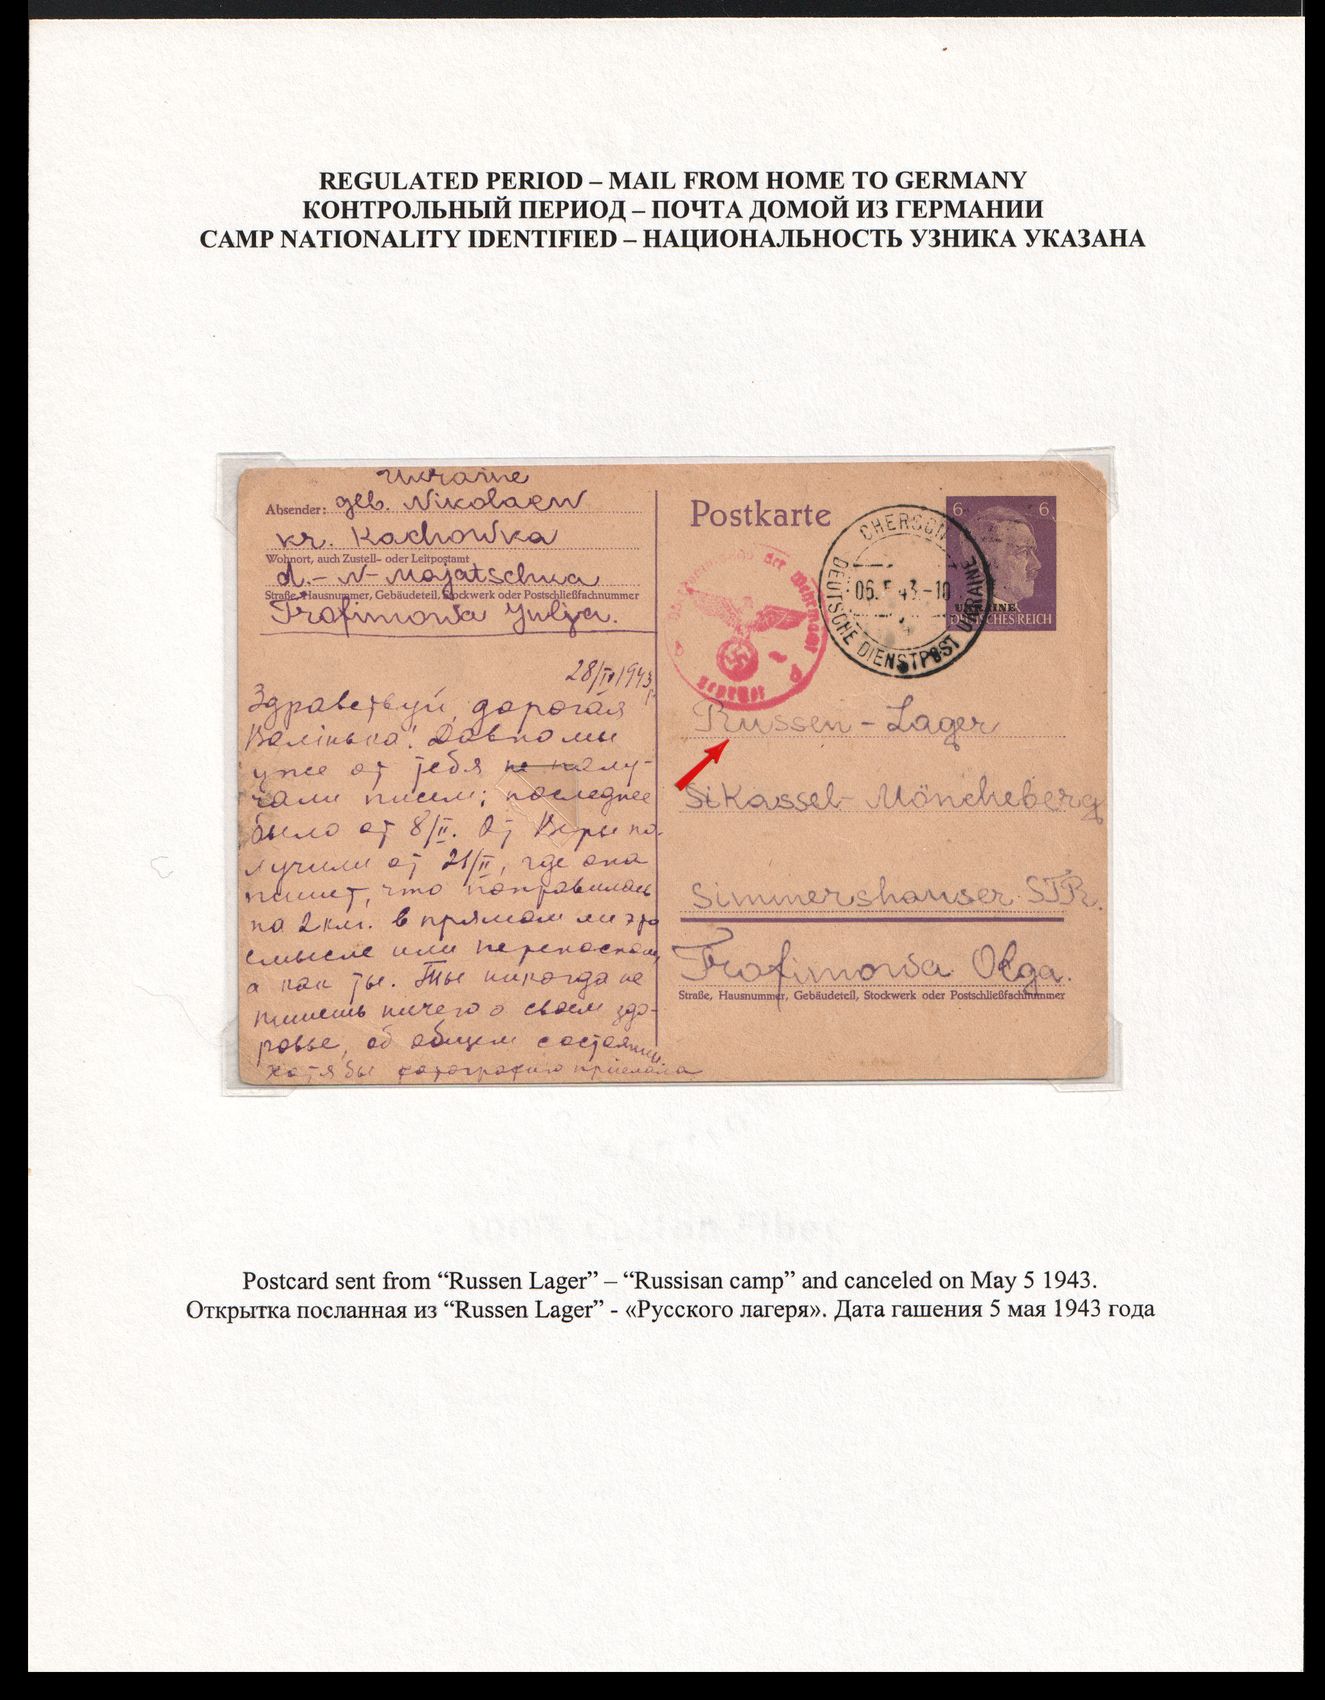 REGULATED PERIOD – MAIL FROM HOME TO GERMANY
КОНТРОЛЬНЫЙ ПЕРИОД – ПОЧТА ДОМОЙ ИЗ ГЕРМАНИИ
CAMP NATIONALITY IDENTIFIED – НАЦИОНАЛЬНОСТЬ УЗНИКА УКАЗАНА
Ukraine
Absender: geb. Nikolaew
kr. Kachowka
Wohnort, auch Zustell- oder Leitpostamt
d.- N-Majatschka
Straße, Hausnummer, Gebäudeteil, Stockwerk oder Postschließfachnummer
Trofimowa Julja.
28/IV 1943
Здравствуй, дорогая
Валінька! Давно мы
уже от тебя не полу-
чали писем; последнее
было от 8/II. От Веры по-
лучили от 21/II, где она
пишет, что поправилась
на 2 кг. в прямом ли это
смысле или переносном,
а как ты. Ты никогда не
пишешь ничего о своем здо-
ровье, об общем состоянии
хотя бы фотографию прислала
Postkarte
CHERSON
06.5.43.-10
DEUTSCHE DIENSTPOST UKRAINE
6 6
UKRAINE
DEUTSCHES REICH
der Wehrmacht
Russen-Lager
Kassel-Möncheberg
Simmershauser STR.
Trofimowa Olga.
Straße, Hausnummer, Gebäudeteil, Stockwerk oder Postschließfachnummer
Postcard sent from “Russen Lager” – “Russisan camp” and canceled on May 5 1943.
Открытка посланная из “Russen Lager” - «Русского лагеря». Дата гашения 5 мая 1943 года